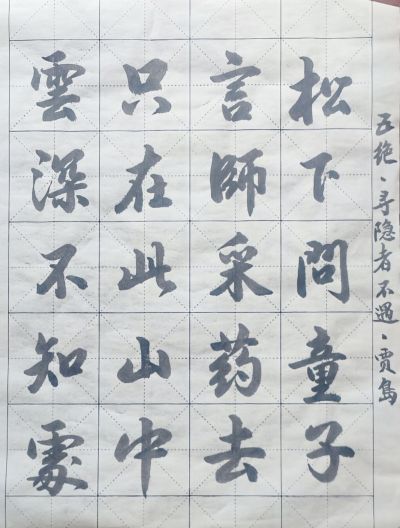 五绝·寻隐者不遇·贾岛
松下問童子
言師采药去
只在此山中
雲深不知處